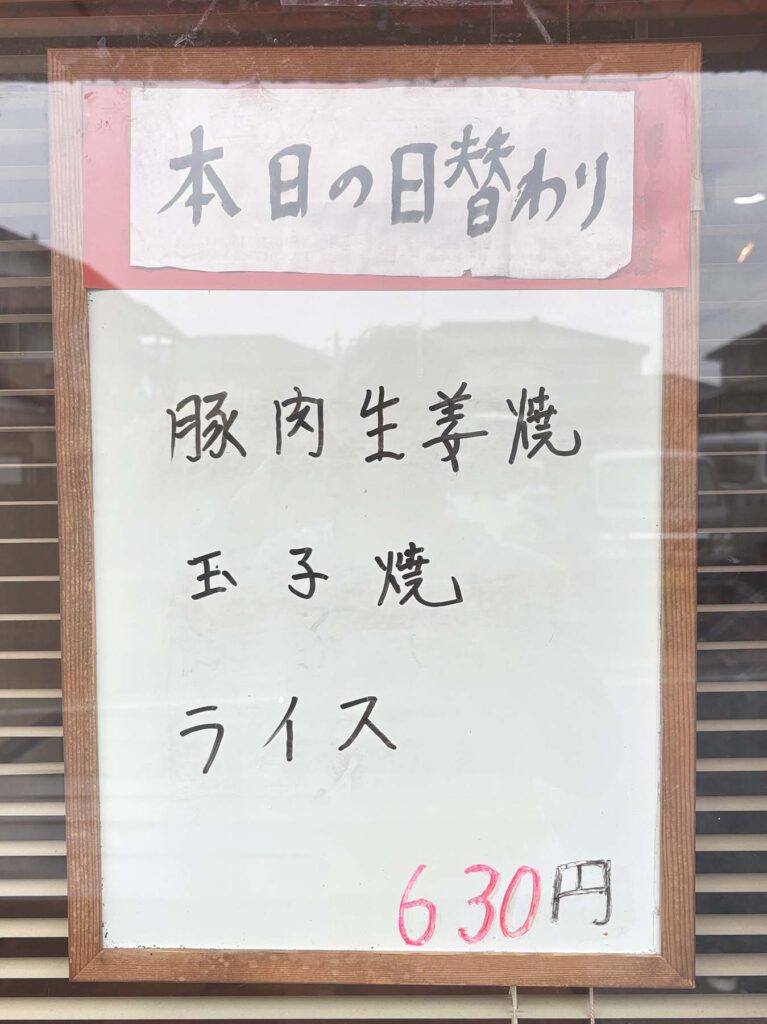 本日の日替わり
豚肉生姜焼
玉子焼
ライス
630円